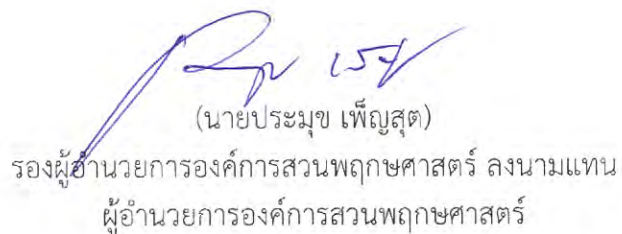 (นายประมุข เพ็ญสุต)
รองผู้อำนวยการองค์การสวนพฤกษศาสตร์ ลงนามแทน
ผู้อำนวยการองค์การสวนพฤกษศาสตร์